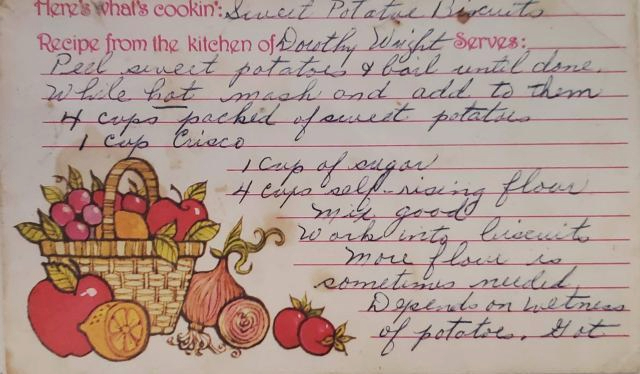 Here's what's cookin': Sweet Potatoe Biscuits
Recipe from the kitchen of Dorothy Wright Serves:
Peel sweet potatoes & boil until done.
While hot mash and add to them
4 cups packed of sweet potatoes
1 cup Crisco
1 cup of sugar
4 cups self-rising flour
Mix good
Work into biscuits
More flour is
sometimes needed
Depends on wetness
of potatoes. Got